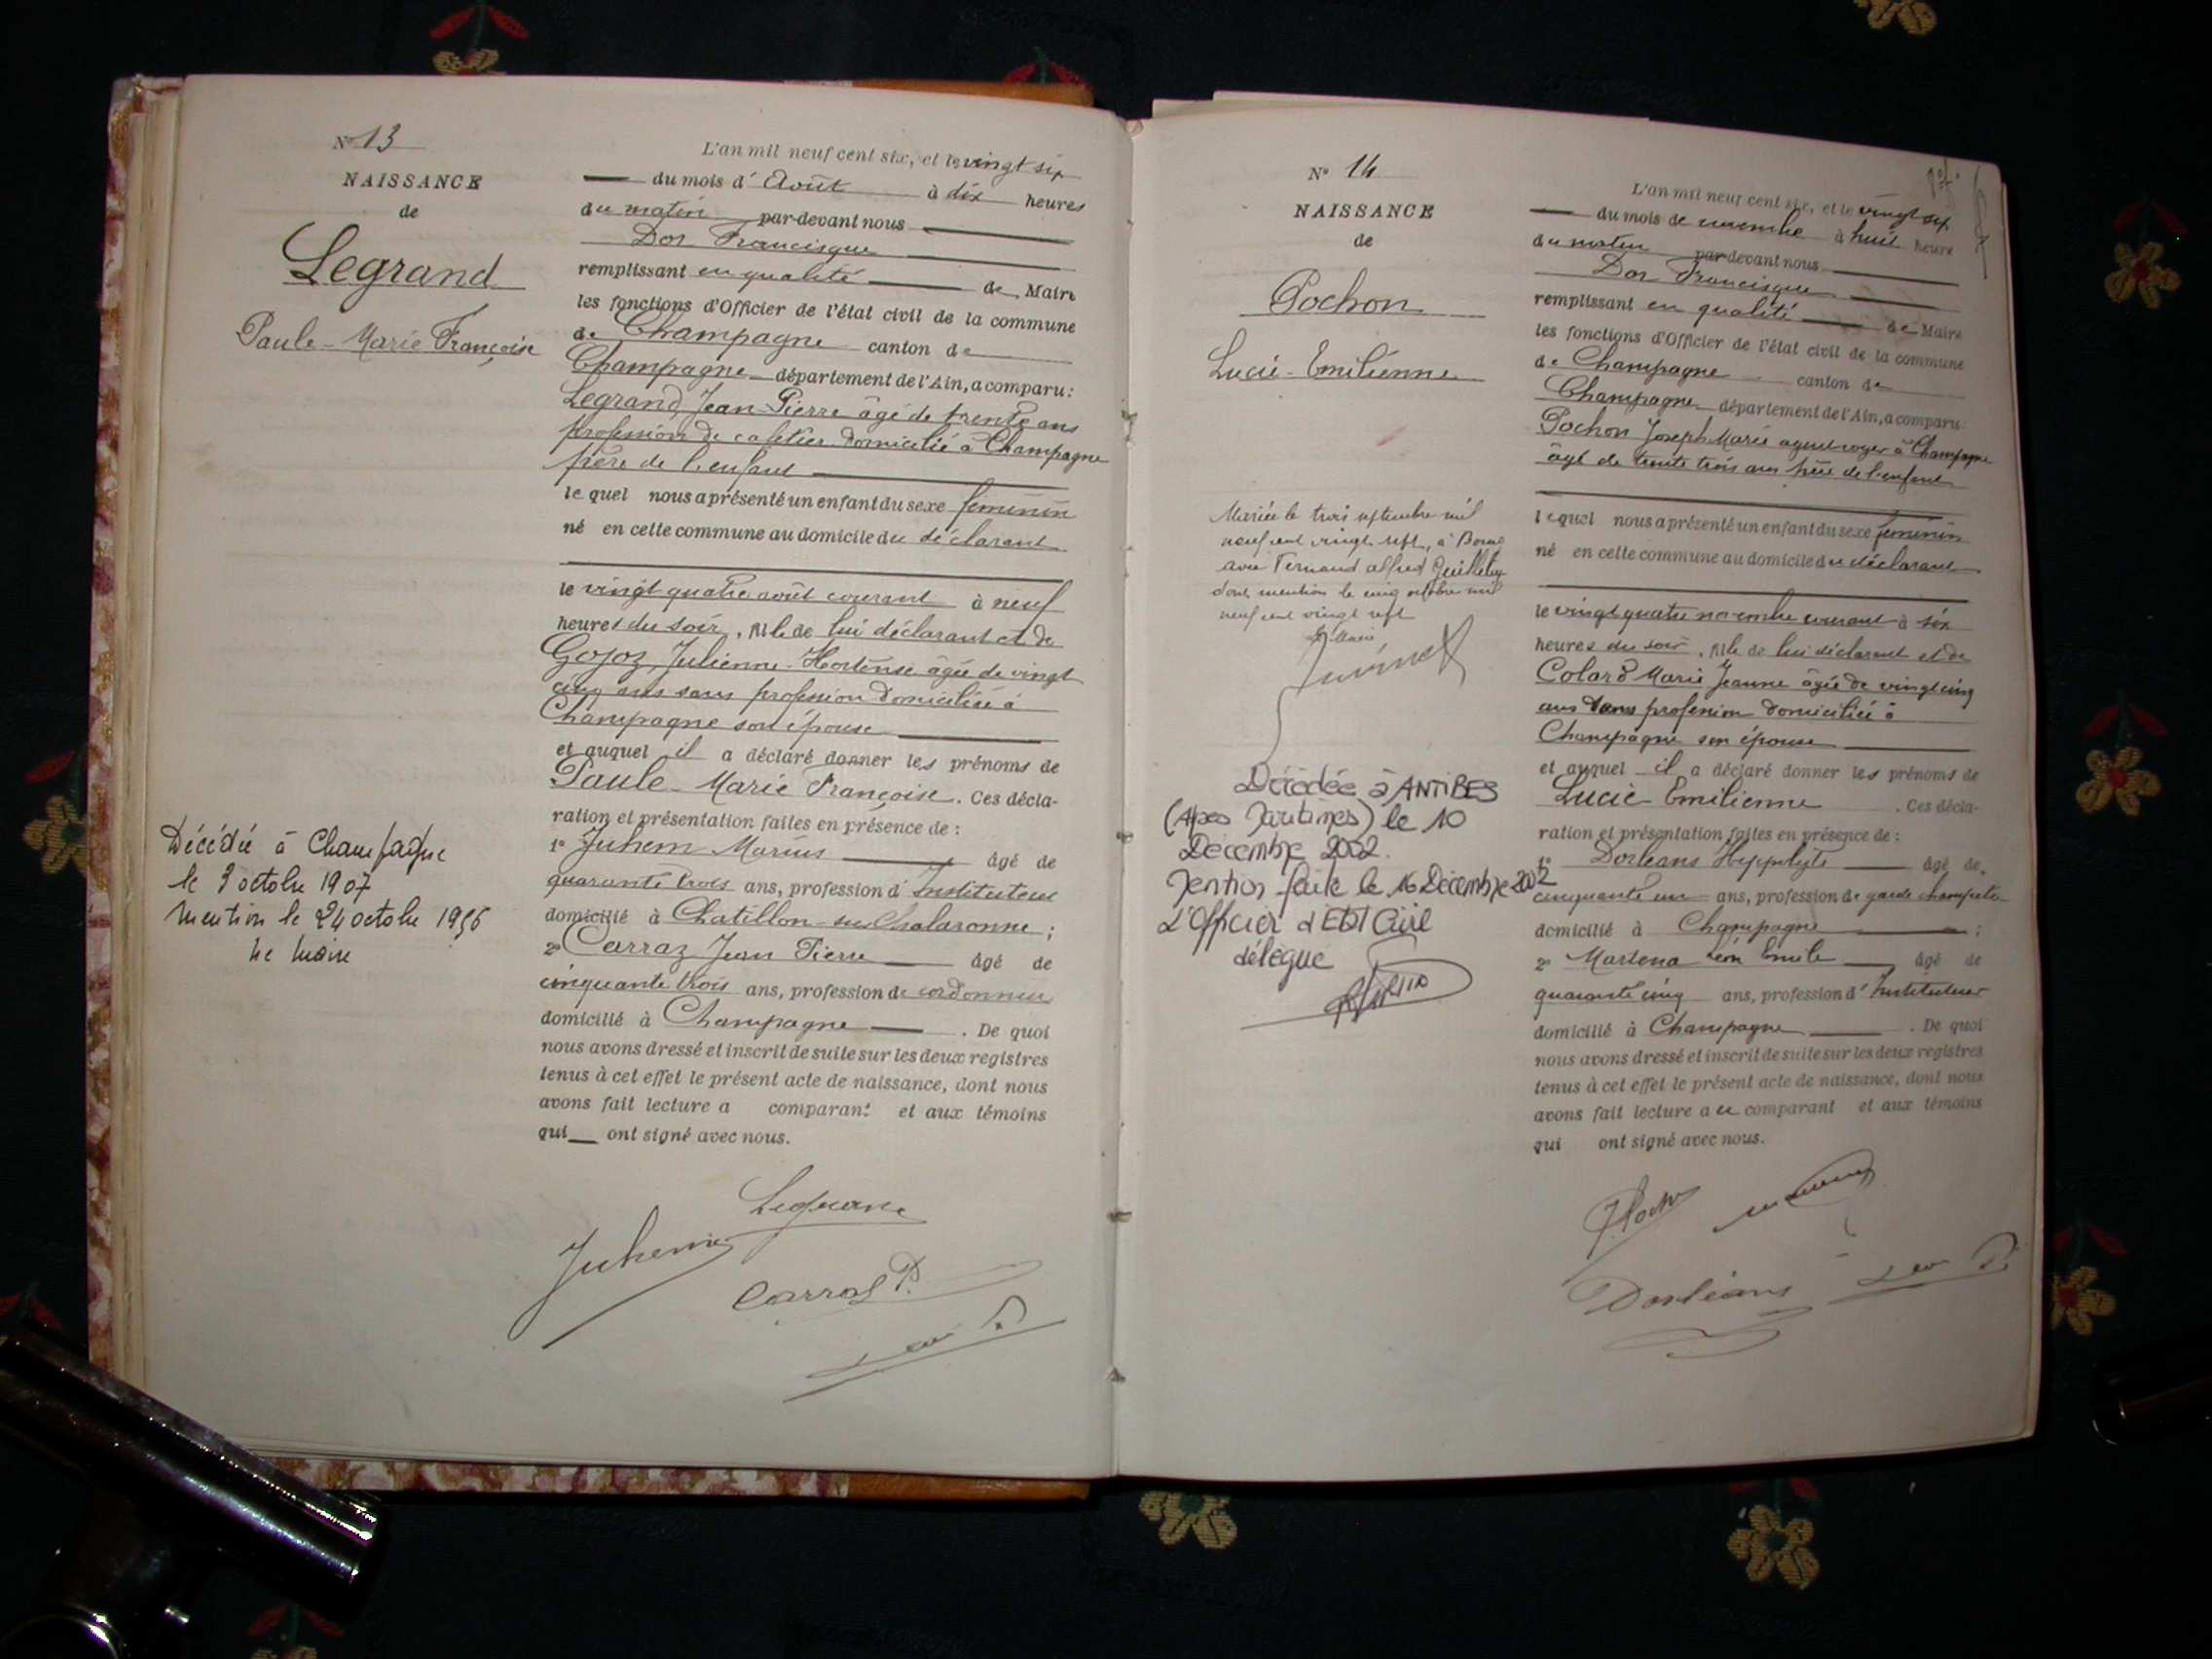 N° 13
NAISSANCE
de
Legrand
Paule-Marie Françoise
Décédée à Champagne
le 9 octobre 1907
Mention le 24 octobre 1956
Le Maire
L'an mil neuf cent six, et le vingt six
du mois d'Août à dix heures
du matin par-devant nous
Dor Francisque
remplissant en qualité de Maire
les fonctions d'Officier de l'état civil de la commune
de Champagne canton de
Champagne département de l'Ain, a comparu:
Legrand, Jean-Pierre âgé de trente ans
profession de cafetier domicilié à Champagne
père de l'enfant
lequel nous a présenté un enfant du sexe féminin
né en cette commune au domicile du déclarant
le vingt quatre août courant à neuf
heures du soir, fille de lui déclarant et de
Gojoz, Julienne-Hortense âgée de vingt
cinq ans sans profession domiciliée à
Champagne son épouse
et auquel il a déclaré donner les prénoms de
Paule-Marie Françoise. Ces décla-
ration et présentation faites en présence de:
1° Juhem Marius âgé de
quarante trois ans, profession d'Instituteur
domicilié à Chatillon-sur-Chalaronne;
2° Carraz Jean Pierre âgé de
cinquante trois ans, profession de cordonnier
domicilié à Champagne. De quoi
nous avons dressé et inscrit de suite sur les deux registres
tenus à cet effet le présent acte de naissance, dont nous
avons fait lecture a comparant et aux témoins
qui ont signé avec nous.
Legrand
Juhem
Carraz P.
N° 14
NAISSANCE
de
Pochon
Lucie-Emilienne
Mariée le trois septembre mil
neuf cent vingt sept, à
avec Fernand Alfred
dont mention le cinq octobre mil
neuf cent vingt sept
Le Maire
Décédée à ANTIBES
(Alpes Maritimes) le 10
Décembre 2002.
Mention faite le 16 Décembre 2002
L'Officier d'Etat Civil
délégué
L'an mil neuf cent six, et le vingt six
du mois de novembre à huit heure
du matin par-devant nous
Dor Francisque
remplissant en qualité de Maire
les fonctions d'Officier de l'état civil de la commune
de Champagne canton de
Champagne département de l'Ain, a comparu:
Pochon Joseph Marie agent voyer à Champagne
âgé de trente trois ans père de l'enfant
lequel nous a présenté un enfant du sexe féminin
né en cette commune au domicile du déclarant
le vingt quatre novembre courant à six
heures du soir, fille de lui déclarant et de
Colard Marie Jeanne âgée de vingt cinq
ans sans profession domiciliée à
Champagne son épouse
et auquel il a déclaré donner les prénoms de
Lucie Emilienne. Ces décla-
ration et présentation faites en présence de:
1° Dorléans Hyppolyte âgé de
cinquante un ans, profession de garde champêtre
domicilié à Champagne;
2° Martena Léon Emile âgé de
quarante cinq ans, profession d'Instituteur
domicilié à Champagne. De quoi
nous avons dressé et inscrit de suite sur les deux registres
tenus à cet effet le présent acte de naissance, dont nous
avons fait lecture au comparant et aux témoins
qui ont signé avec nous.
Dorléans